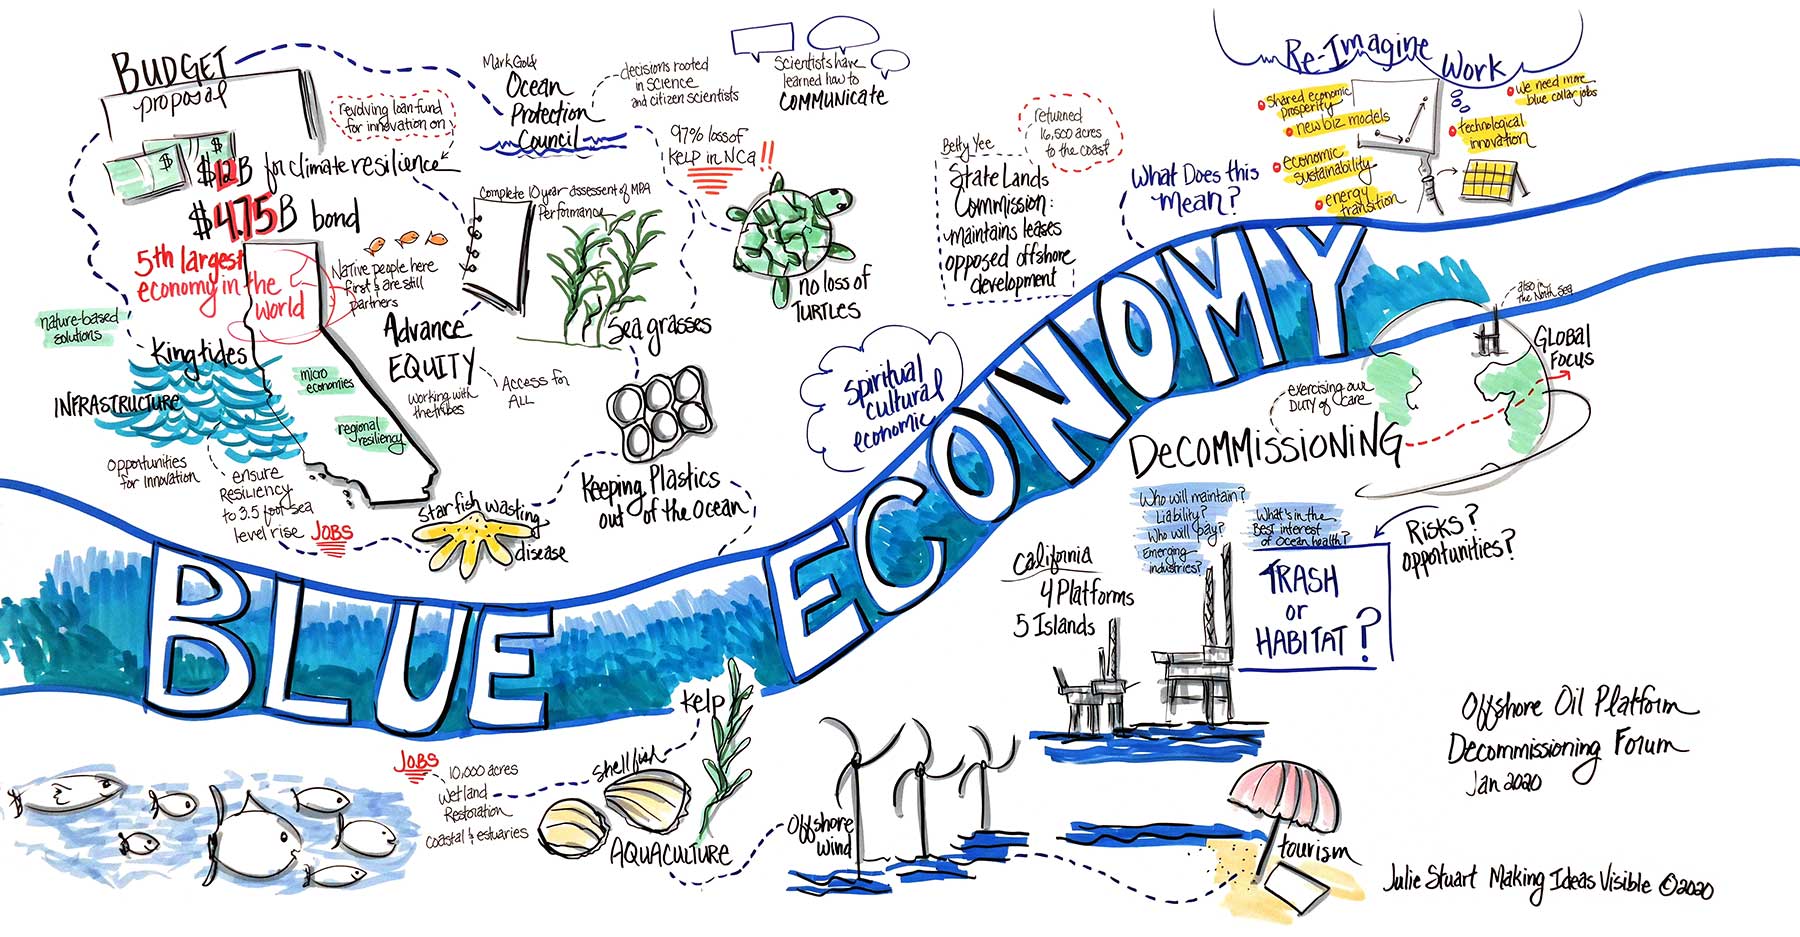 BUDGET
proposal
revolving loan fund
for innovation on
$12B for climate resilience
$4.75B bond
5th largest
economy in the
world
Native people here
first & are still
partners
nature-based
solutions
King tides
INFRASTRUCTURE
micro
economies
regional
resiliency
opportunities
for innovation
ensure
Resiliency
to 3.5 foot sea
level rise
JOBS
Advance
EQUITY
working with
the tribes
Access for
ALL
Mark Gold
Ocean
Protection
Council
decisions rooted
in science
and citizen scientists
Scientists have
learned how to
COMMUNICATE
97% loss of
KELP in NCa !!
Complete 10 year assessent of MPA
Performance
Sea grasses
no loss of
TURTLES
Keeping Plastics
out of the Ocean
Starfish wasting
disease
Betty Yee
State Lands
Commission:
maintains leases
opposed offshore
development
returned
16,500 acres
to the coast
What Does this
mean?
Re-Imagine
Work
shared economic
prosperity
new biz models
economic
sustainability
energy
transition
we need more
blue collar jobs
technological
innovation
spiritual
cultural
economic
BLUE ECONOMY
also in
the North Sea
GLOBAL
FOCUS
exercising our
DUTY of care
DECOMMISSIONING
Who will maintain?
Liability?
Who will pay?
Emerging
industries?
What's in the
Best interest
of Ocean health?
Risks?
opportunities?
TRASH
or
HABITAT?
California
4 Platforms
5 Islands
Kelp
shellfish
AQUACULTURE
JOBS
10,000 acres
Wetland
Restoration
coastal & estuaries
Offshore
wind
tourism
Offshore Oil Platform
Decommissioning Forum
Jan 2020
Julie Stuart Making Ideas Visible ©2020